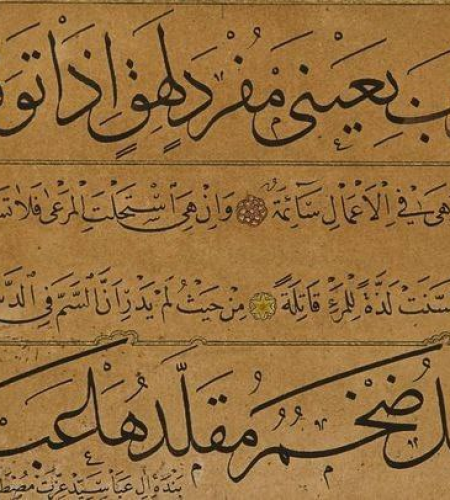 بِعَيْنَيْ مُفْرَدٍ لَهِقٍ اِذَا تَوَ
هِيَ فِي الْاَعْمَالِ سَائِمَةٌ وَاِنْ هِيَ اسْتَحْلَتِ الْمَرْعٰى فَلَا تُسِ
سَّنَتْ لَذَّةً لِلْمَرْءِ قَاتِلَةً مِنْ حَيْثُ لَمْ يَدْرِ اَنَّ السَّمَّ فِي الدَّسَ
ضَخْمٌ مُقَلَّدُهَا عَبْ
بنده آل عبا سيد عزت مصط